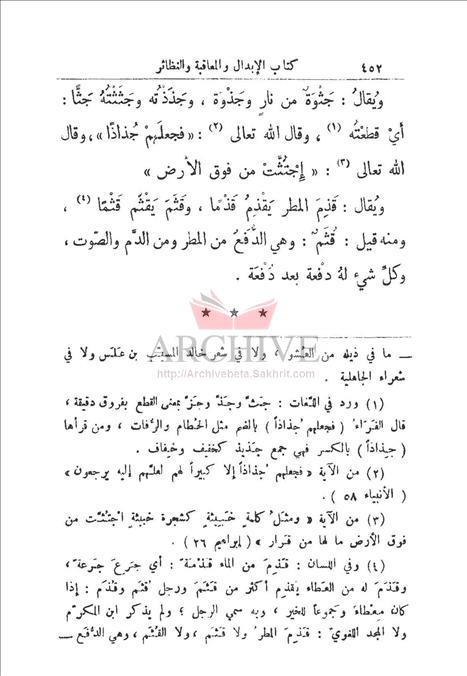 ٤٥٢ كتاب الإبدال والمعاقبة والنظائر
ويُقالُ : جَثْوَةٌ من نارٍ وجَذْوَة ، وجَذَذْتُه وجَثَثْتُهُ جَثًّا :
أيْ قطعْتُه (١) ، وقال الله تعالى (٢) : « فجعلَهمْ جُذاذًا » ، وقال
الله تعالى (٣) : « إِجْتُثَّتْ من فوق الأرض »
ويُقال : قَذِمَ المطر يَقْذِمُ قَذْمًا ، وقَثَمَ يَقْثَم قَثْمًا (٤) ،
ومنه قيل : قُثَمٌ : وهي الدُّفَعُ من المطر ومن الدَّم والصّوت ،
وكلِّ شيءٍ لهُ دفْعة بعد دُفْعَة .
* * *
ARCHIVE
http://Archivebeta.Sakhrit.com
ــ ما في ذيله من العُشو ، ولا في شعر خالد المسيّب بن علَس ولا في
شعراء الجاهلية .
(١) ورد في اللغات : جثّ وجذّ وجزّ بمعنى القطع بفروق دقيقة ،
قال الفرّاء ( فجعلهم جُذاذاً ) بالضم مثل الحُطام والرُّفات ، ومن قرأها
( جِذاذاً ) بالكسر فهي جمع جَذيذ كخفيف وخِفاف .
(٢) من الآية « فجعلهم جُذاذاً إلا كبيراً لهم لعلّهم إليه يرجعون »
( الأنبياء ٥٨ ) .
(٣) من الآية « ومثلُ كلمةٍ خبيثةٍ كشجرة خبيثةٍ اجتُثّت من
فوق الأرض ما لها من قرار » ( إبراهيم ٢٦ ) .
(٤) وفي اللسان : قَذِمَ من الماء قُذْمَةً : أي جَرِعَ جَرعة ،
وقَذَمَ له من العطاء يقذم أكثر من قَثَمَ ورجل قُثَم وقُذَم : إذا
كان مِعطاءً وجَموعاً للخير ، وبه سمي الرجل ؛ ولم يذكر ابن المكرّم
ولا المجد اللغويّ : قَذِمَ المطر ولا قَثَم ، ولا القُثَم ، وهي الدُّفَع ــ